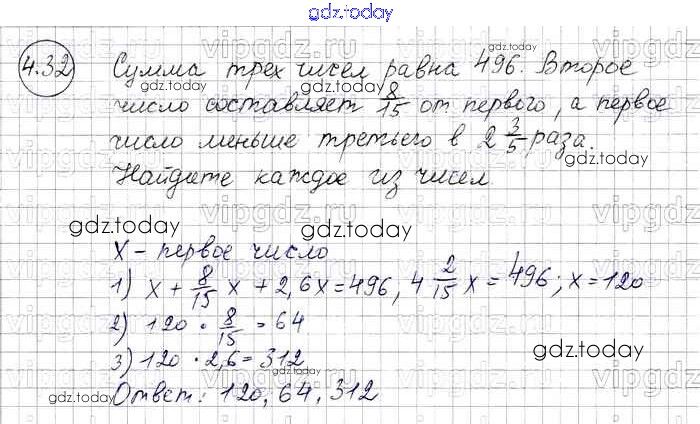 gdz.today
4.32 Сумма трех чисел равна 496. Второе
число составляет 8/15 от первого, а первое
число меньше третьего в 2 3/5 раза.
Найдите каждое из чисел.
x - первое число
1) x + 8/15 x + 2,6x = 496, 4 2/15 x = 496; x = 120
2) 120 · 8/15 = 64
3) 120 · 2,6 = 312
Ответ: 120, 64, 312
gdz.today
gdz.today
gdz.today
gdz.today
gdz.today
gdz.today
gdz.today
gdz.today
gdz.today
vipgdz.ru